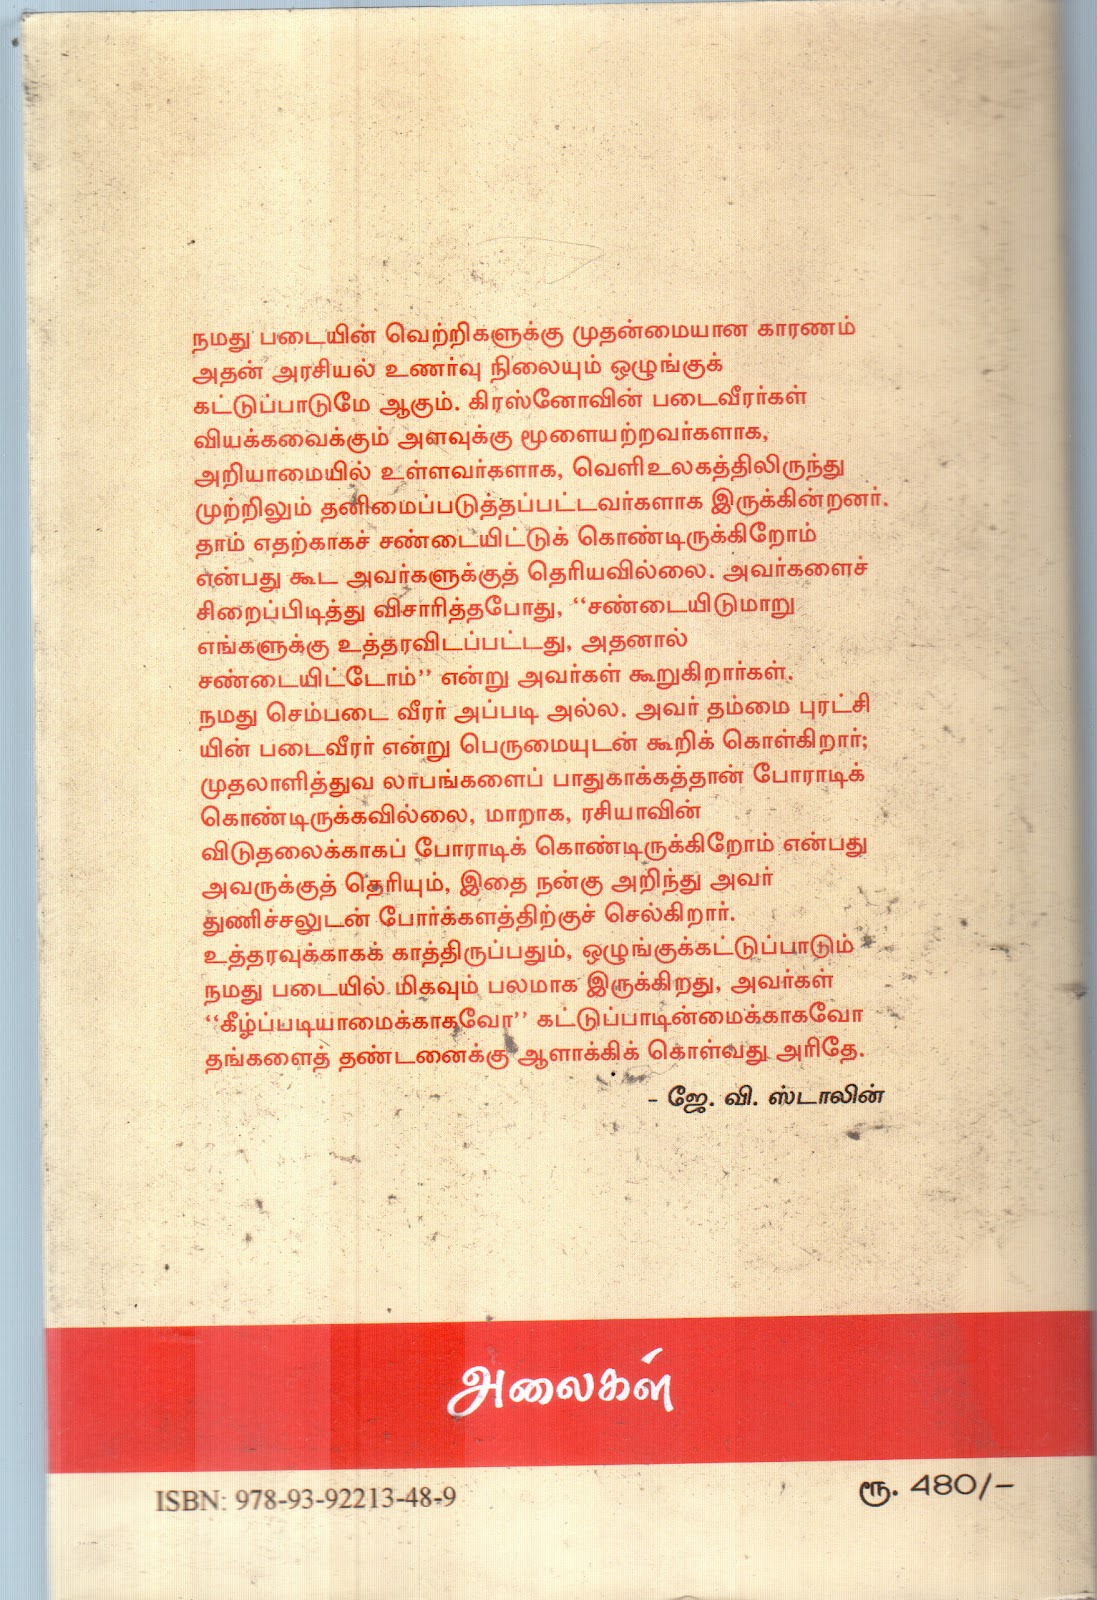 நமது படையின் வெற்றிகளுக்கு முதன்மையான காரணம்
அதன் அரசியல் உணர்வு நிலையும் ஒழுங்குக்
கட்டுப்பாடுமே ஆகும். கிரஸ்னோவின் படைவீரர்கள்
வியக்கவைக்கும் அளவுக்கு மூளையற்றவர்களாக,
அறியாமையில் உள்ளவர்களாக, வெளிஉலகத்திலிருந்து
முற்றிலும் தனிமைப்படுத்தப்பட்டவர்களாக இருக்கின்றனர்.
தாம் எதற்காகச் சண்டையிட்டுக் கொண்டிருக்கிறோம்
என்பது கூட அவர்களுக்குத் தெரியவில்லை. அவர்களைச்
சிறைப்பிடித்து விசாரித்தபோது, “சண்டையிடுமாறு
எங்களுக்கு உத்தரவிடப்பட்டது, அதனால்
சண்டையிட்டோம்” என்று அவர்கள் கூறுகிறார்கள்.
நமது செம்படை வீரர் அப்படி அல்ல. அவர் தம்மை புரட்சி
யின் படைவீரர் என்று பெருமையுடன் கூறிக் கொள்கிறார்;
முதலாளித்துவ லாபங்களைப் பாதுகாக்கத்தான் போராடிக்
கொண்டிருக்கவில்லை, மாறாக, ரசியாவின்
விடுதலைக்காகப் போராடிக் கொண்டிருக்கிறோம் என்பது
அவருக்குத் தெரியும், இதை நன்கு அறிந்து அவர்
துணிச்சலுடன் போர்க்களத்திற்குச் செல்கிறார்.
உத்தரவுக்காகக் காத்திருப்பதும், ஒழுங்குக்கட்டுப்பாடும்
நமது படையில் மிகவும் பலமாக இருக்கிறது, அவர்கள்
“கீழ்ப்படியாமைக்காகவோ” கட்டுப்பாடின்மைக்காகவோ
தங்களைத் தண்டனைக்கு ஆளாக்கிக் கொள்வது அரிதே.
- ஜே. வி. ஸ்டாலின்
அலைகள்
ISBN: 978-93-92213-48-9
ரூ. 480/-